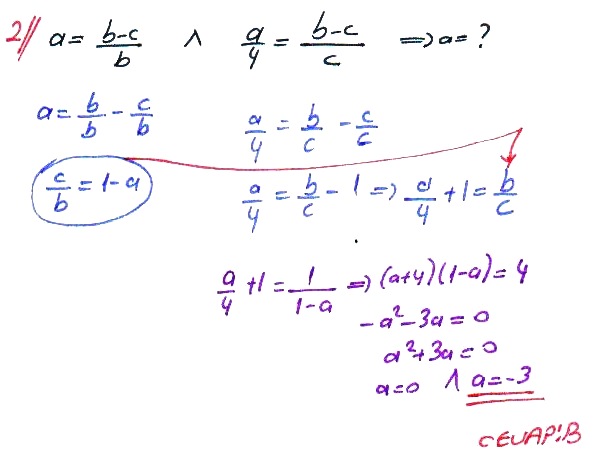 2// a = (b-c)/b ∧ a/4 = (b-c)/c ⟹ a = ?
a = b/b - c/b
a/4 = b/c - c/c
c/b = 1-a
a/4 = b/c - 1 ⟹ a/4 + 1 = b/c
a/4 + 1 = 1/(1-a) ⟹ (a+4)(1-a) = 4
-a² - 3a = 0
a² + 3a = 0
a=0 ∧ a=-3
CEVAP:B